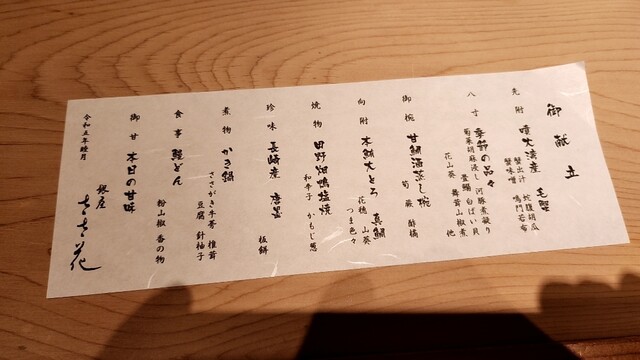 御献立
先附 噴火湾産 毛蟹
蟹出汁 蛇腹胡瓜
蟹味噌 鳴門若布
八寸 季節の品々
菊菜胡麻浸し 河豚煮凝り
萱鰯 白ばい貝
花山葵 舞茸山椒煮 他
御椀 甘鯛酒蒸し椀
筍 蕨 酢橘
向附 本鮪大とろ 真鯛
花穂 山葵
つま色々
焼物 田野畑鴨塩焼
和辛子 かもじ葱
珍味 長崎産 唐墨
板餅
煮物 かき鍋
ささがき牛蒡 椎茸
豆腐 針柚子
食事 鰻どん
粉山椒 香の物
御甘 本日の甘味
令和五年 月
銀座 ささ花